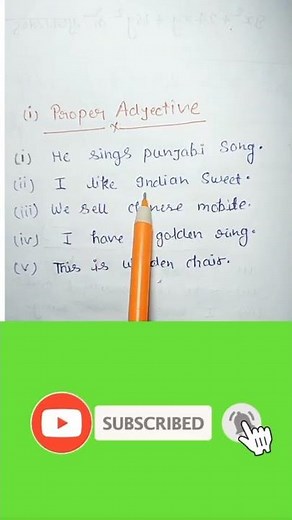 (i) Proper Adjective
(i) He sings punjabi song.
(ii) I like Indian Sweet.
(iii) We sell mobile.
(iv) I have golden ring.
(v) This is chair.
SUBSCRIBED